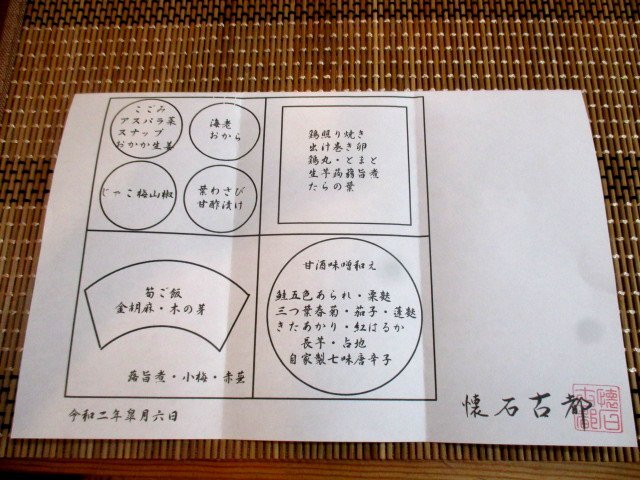 こごみ
アスパラ菜
スナップ
おかか生姜
海老
おから
じゃこ梅山椒
葉わさび
甘酢漬け
鶏照り焼き
出汁巻き卵
鶏丸・とまと
生芋蒟蒻旨煮
たらの葉
筍ご飯
金胡麻・木の芽
蕗旨煮・小梅・赤蕪
甘酒味噌和え
鮭五色あられ・粟麩
三つ葉春菊・茄子・蓬麩
きたあかり・紅はるか
長芋・占地
自家製七味唐辛子
令和二年皐月六日
懐石古都